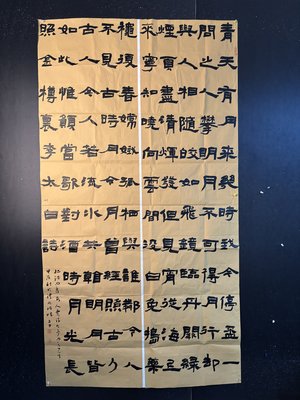 青天有月來幾時我今停盃一
問之人攀明月不可得月行却
與人相隨皎如飛鏡臨丹闕綠
煙滅盡清輝發但見宵從海上
來寧知曉向雲間没白兔搗藥
穐復春嫦娥孤栖與誰鄰今人
不見古時月今月曾經照古人
古人今人若流水共看明月皆
如此惟願當歌對酒時月光長
照金樽裏李太白詩